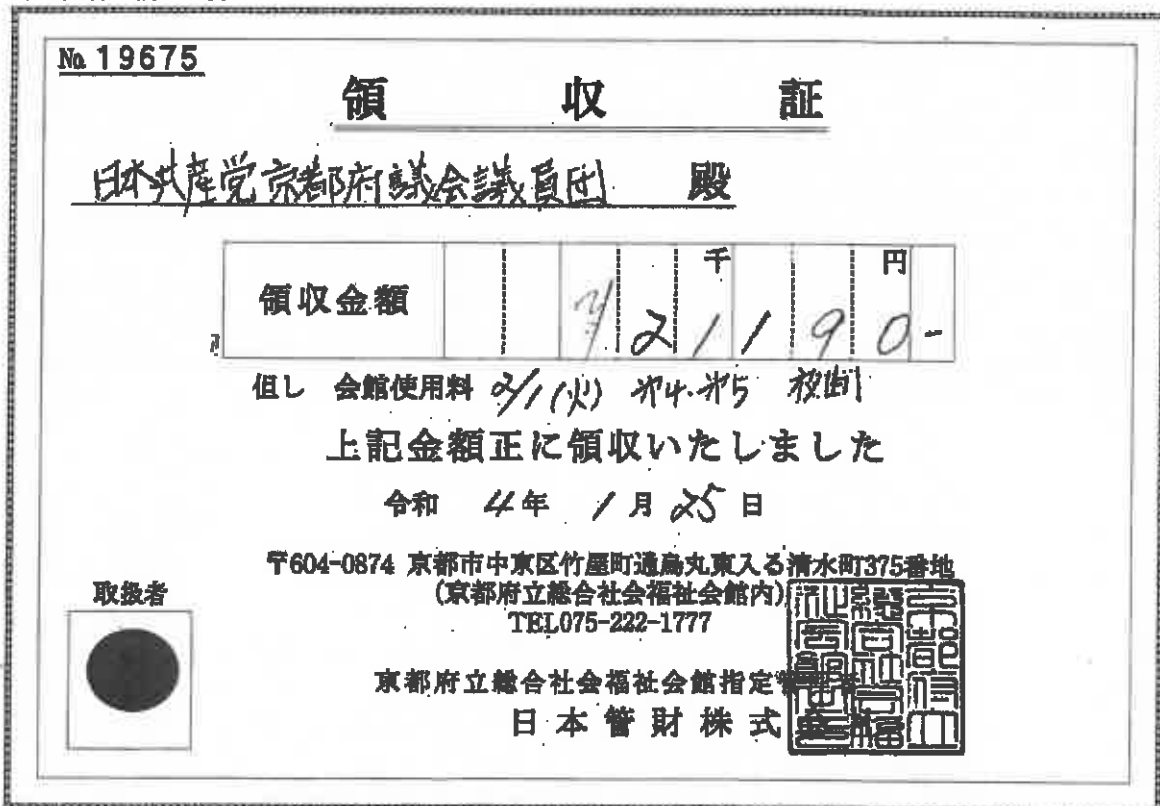 № 19675
領収証
日本共産党京都府議会議員団 殿
千 円
領収金額 ¥21190-
但し 会館使用料 2/1(火) オ4・オ5 夜間
上記金額正に領収いたしました
令和 4年 1月 25日
〒604-0874 京都市中京区竹屋町通烏丸東入る清水町375番地
(京都府立総合社会福祉会館内)
TEL075-222-1777
取扱者
京都府立総合社会福祉会館指定管
日本管財株式